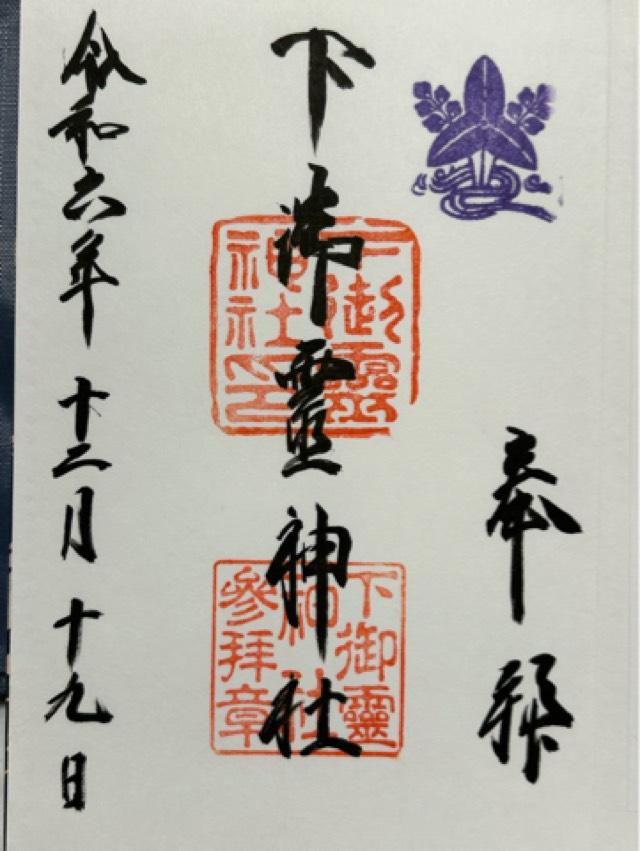 奉拝
下御靈神社
令和六年十二月十九日
下御靈
神社印
下御靈
神社
參拝章